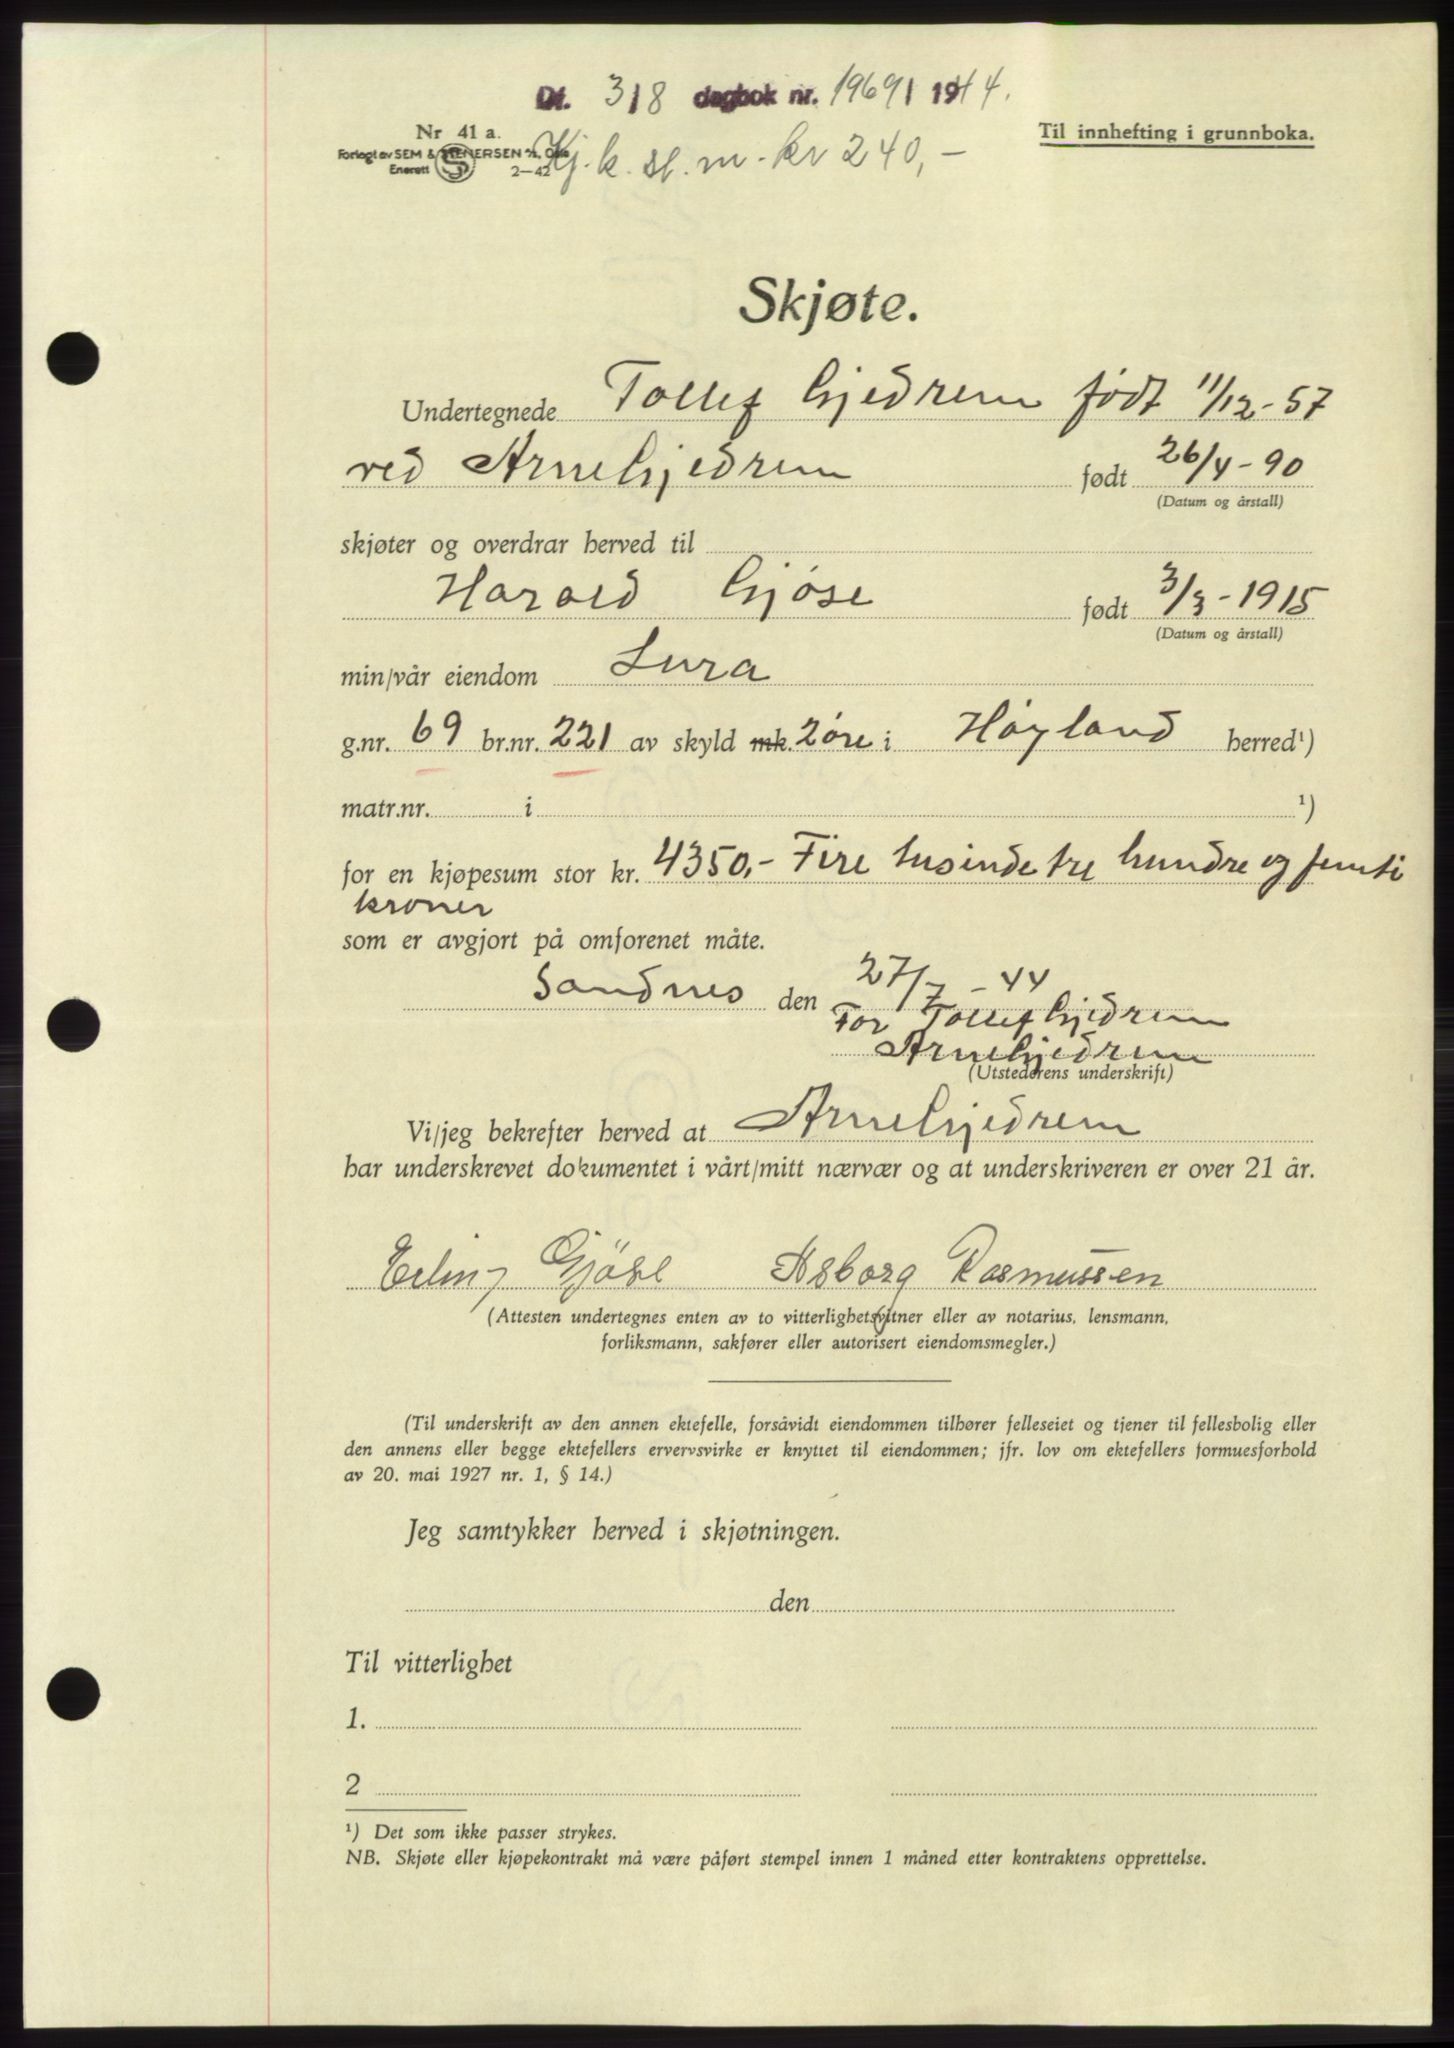 Df. 3/8 dagbok nr. 1969 1944.
Nr 41 a.
Til innhefting i grunnboka.
Forlagt av SEM & STENERSEN A/S, Oslo
Enerett S 2-42
Kj.k. st. m. kr 240,-
Skjøte.
Undertegnede Tollef Gjedrem født 11/12-57
ved Arne Gjedrem født 26/4-90
(Datum og årstall)
skjøter og overdrar herved til
Harald Gjøse født 3/3-1915
(Datum og årstall)
min/vår eiendom Lura
g.nr. 69 br.nr. 221 av skyld mk. 2 øre i Høyland herred¹)
matr.nr. i ¹)
for en kjøpesum stor kr. 4350,- Fire tusinde tre hundre og femti
kroner
som er avgjort på omforenet måte.
Sandnes den 27/7-44
For Tollef Gjedrem
Arne Gjedrem
(Utstederens underskrift)
Vi/jeg bekrefter herved at Arne Gjedrem
har underskrevet dokumentet i vårt/mitt nærvær og at underskriveren er over 21 år.
Erling Gjøse Asborg Rasmussen
(Attesten undertegnes enten av to vitterlighetsvitner eller av notarius, lensmann,
forliksmann, sakfører eller autorisert eiendomsmegler.)
(Til underskrift av den annen ektefelle, forsåvidt eiendommen tilhører felleseiet og tjener til fellesbolig eller
den annens eller begge ektefellers ervervsvirke er knyttet til eiendommen; jfr. lov om ektefellers formuesforhold
av 20. mai 1927 nr. 1, § 14.)
Jeg samtykker herved i skjøtningen.
den
Til vitterlighet
1.
2
¹) Det som ikke passer strykes.
NB. Skjøte eller kjøpekontrakt må være påført stempel innen 1 måned etter kontraktens opprettelse.